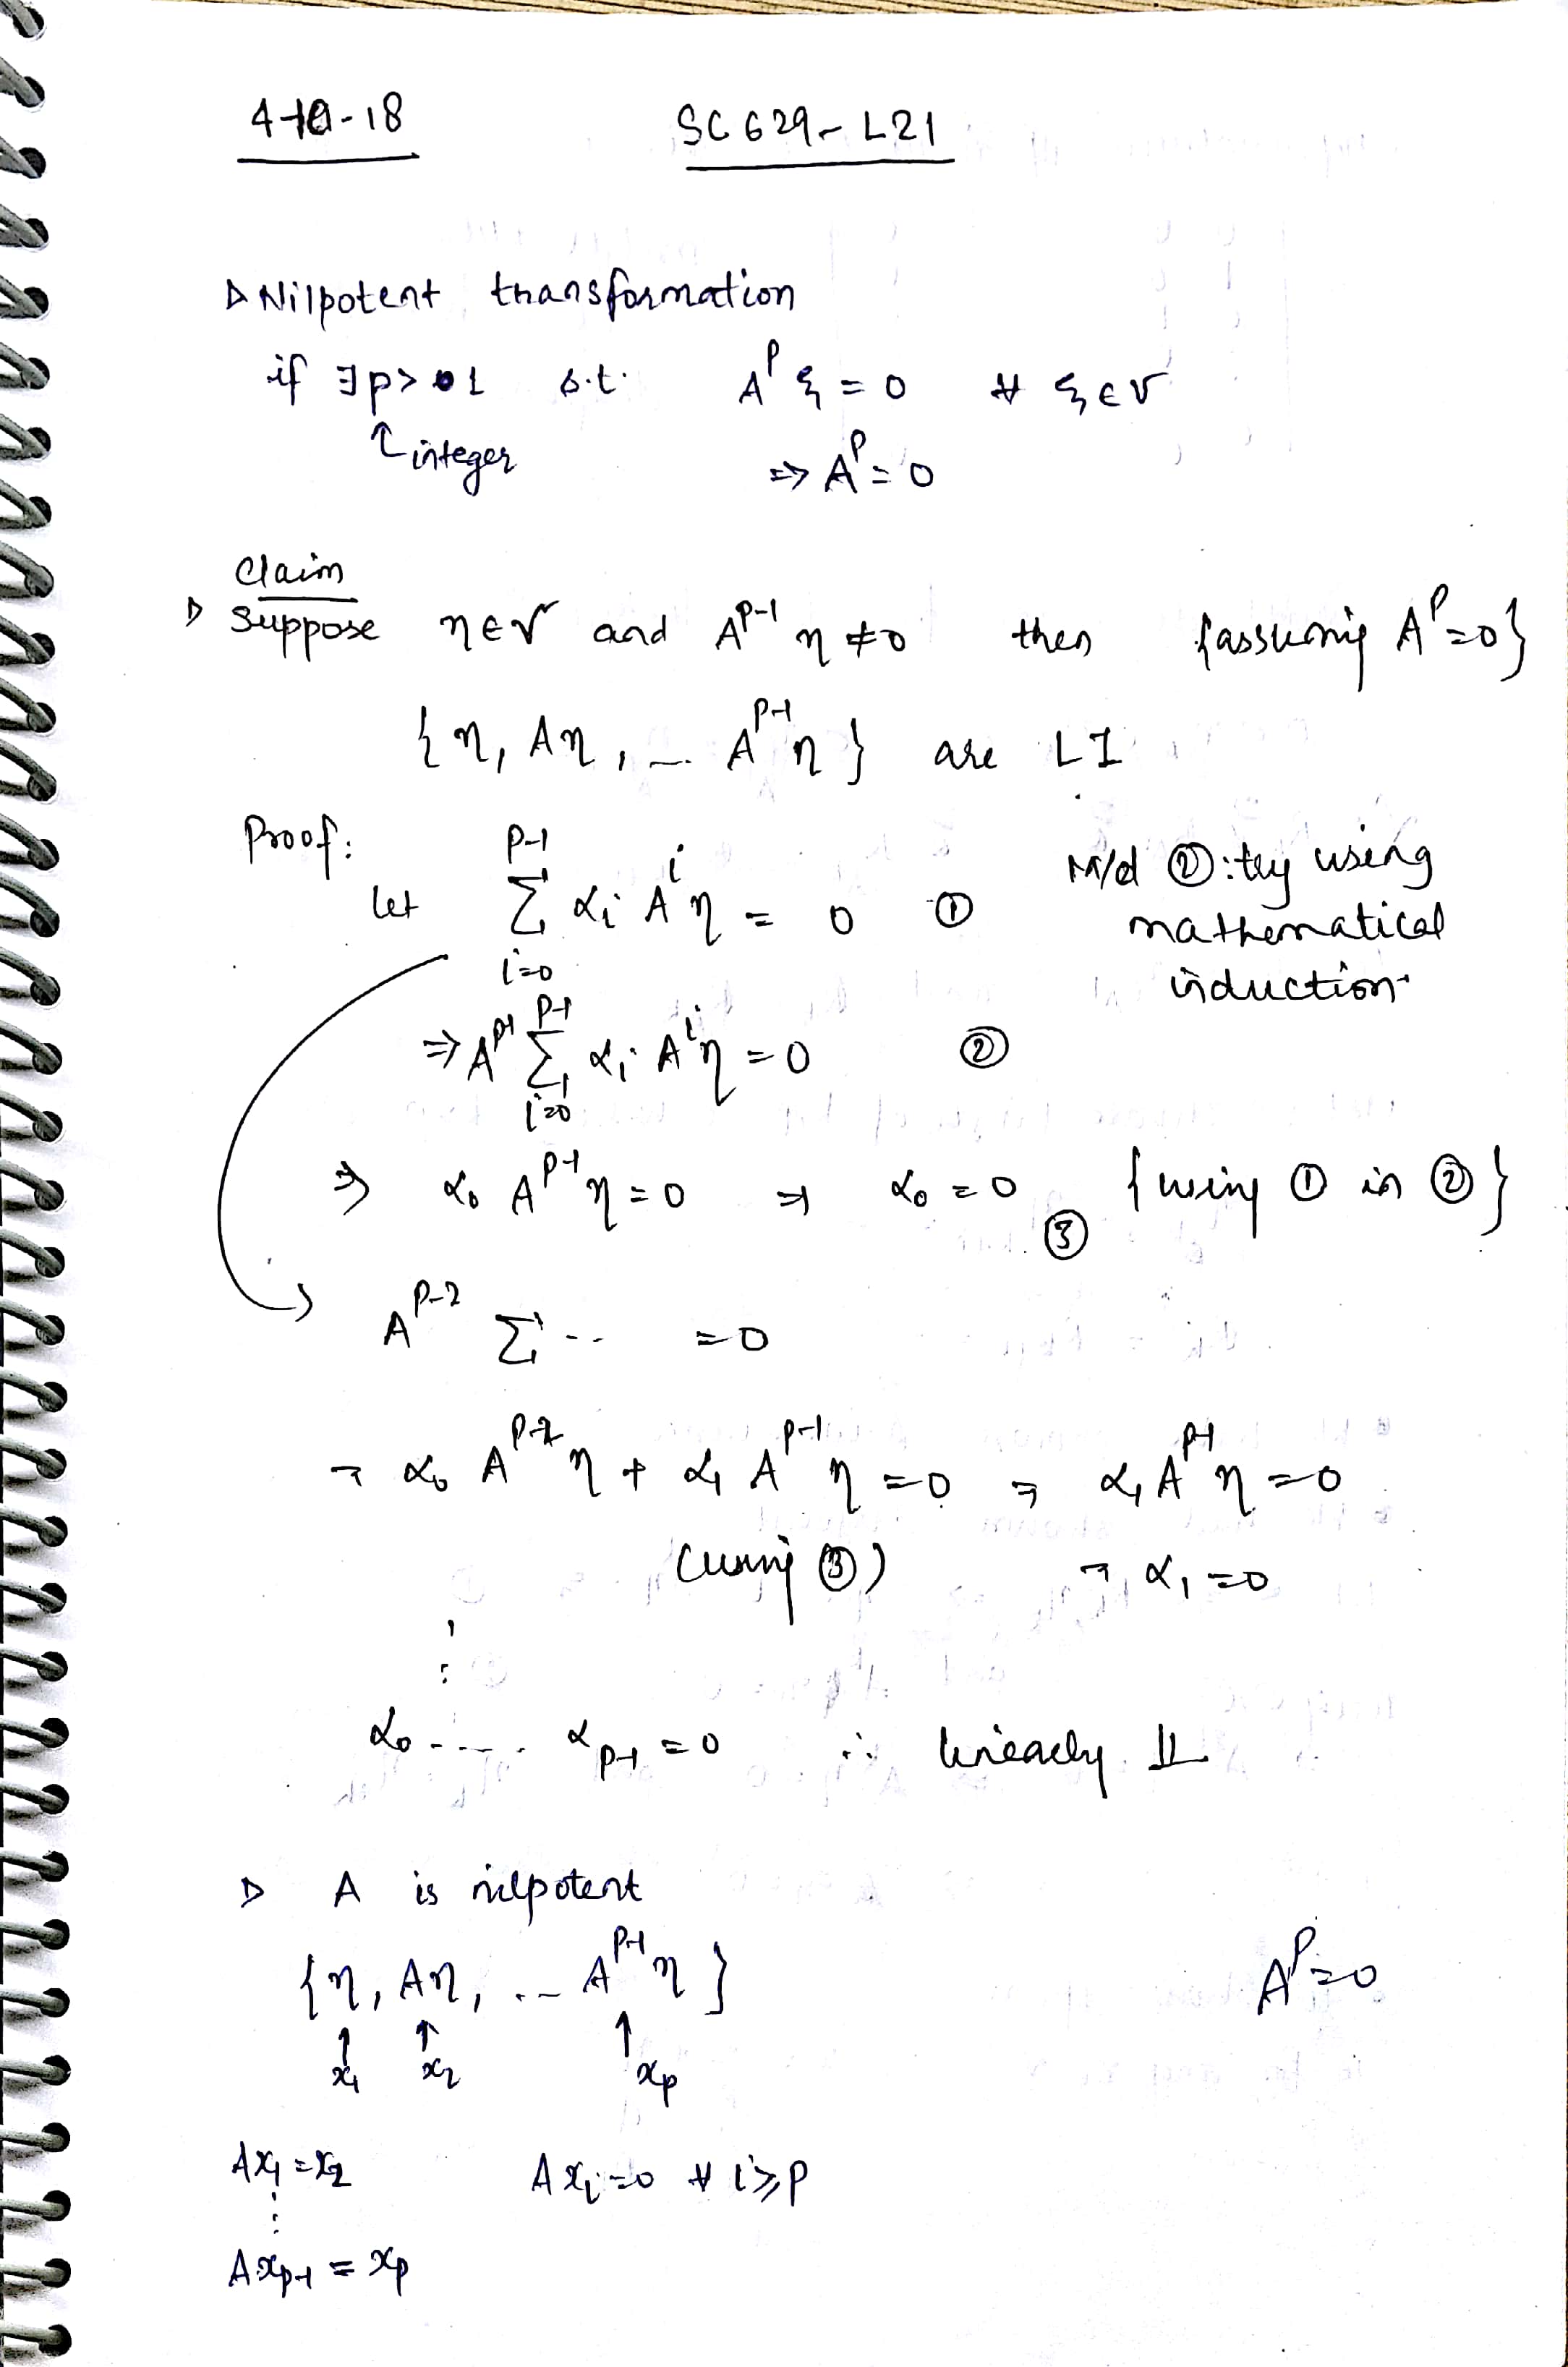 4-10-18 SC 629 - L21
▷ Nilpotent transformation
if ∃ p > 1 s.t. A^p ξ = 0 ∀ ξ ∈ V
↑ integer ⇒ A^p = 0
Claim
▷ Suppose η ∈ V and A^{p-1} η ≠ 0 then {assuming A^p = 0}
{η, Aη, ... A^{p-1} η} are LI
Proof:
let ∑_{i=0}^{p-1} α_i A^i η = 0 ①
M/d ②: try using
mathematical
induction
⇒ A^{p-1} ∑_{i=0}^{p-1} α_i A^i η = 0 ②
⇒ α_0 A^{p-1} η = 0 ⇒ α_0 = 0 ③ {using ① in ②}
A^{p-2} ∑ .. = 0
⇒ α_0 A^{p-2} η + α_1 A^{p-1} η = 0 ⇒ α_1 A^{p-1} η = 0
(using ③) ⇒ α_1 = 0
⋮
α_0 ---- α_{p-1} = 0 ∴ linearly ⫫
▷ A is nilpotent
{η, Aη, ... A^{p-1} η} A^p = 0
↑ ↑ ↑
x_1 x_2 x_p
Ax_1 = x_2 Ax_i = 0 ∀ i ≥ p
⋮
Ax_{p-1} = x_p